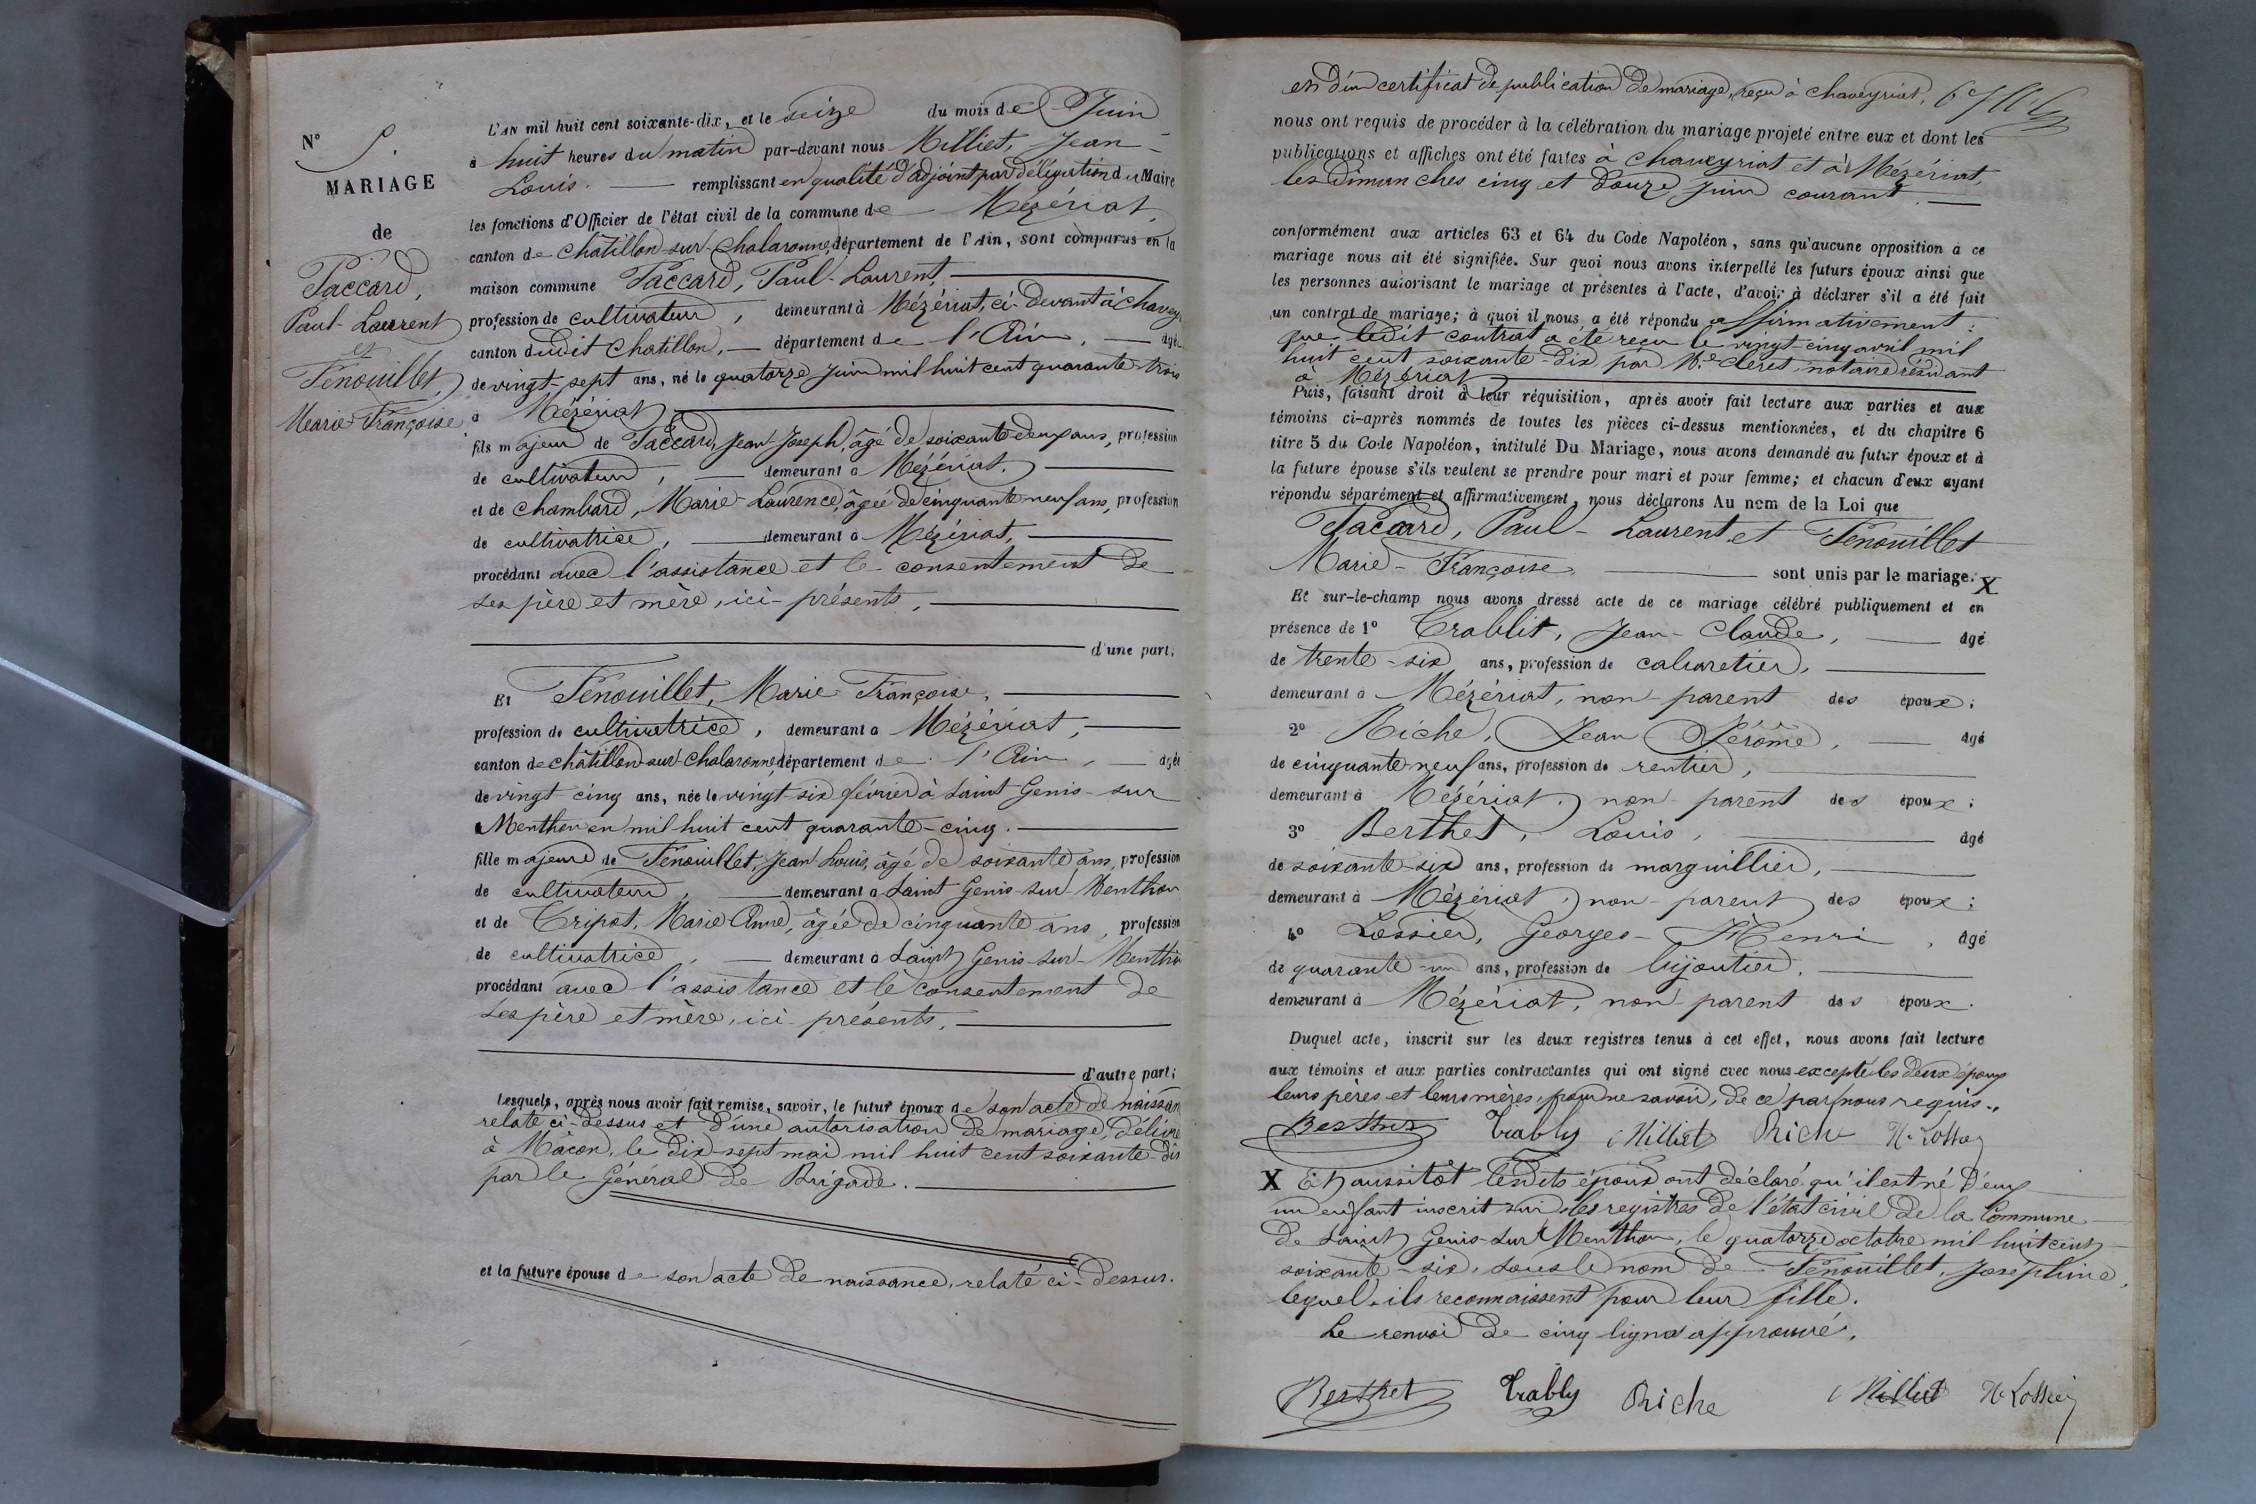 L'AN mil huit cent soixante-dix, et le seize du mois de Juin
à huit heures du matin par-devant nous Milliet, Jean-
Louis. remplissant en qualité d'adjoint par délégation du Maire
les fonctions d'Officier de l'état civil de la commune de Mézériat,
canton de Châtillon-sur-Chalaronne, département de l'Ain, sont comparus en la
maison commune Paccard, Paul-Laurent,
profession de cultivateur, demeurant à Mézériat, ci-devant à Chavey
canton dudit Chatillon, département de l'Ain, âgé
de vingt-sept ans, né le quatorze juin mil huit cent quarante-trois
à Mézériat
fils majeur de Paccard, Jean-Joseph, âgé de soixante deux ans, profession
de cultivateur, demeurant à Mézériat.
et de Chambard, Marie-Laurence, âgée de cinquante neuf ans, profession
de cultivatrice, demeurant à Mézériat,
procédant avec l'assistance et le consentement de
ses père et mère, ici-présents,
d'une part;
Et Fenouillet, Marie Françoise,
profession de cultivatrice, demeurant à Mézériat,
canton de châtillon-sur-Chalaronne, département de l'Ain, âgée
de vingt cinq ans, née le vingt-six février à Saint Genis-sur
Menthon en mil huit cent quarante-cinq.
fille majeure de Fenouillet, Jean Louis, âgé de soixante ans, profession
de cultivateur, demeurant à Saint Genis-sur-Menthon
et de Tripot, Marie Anne, âgée de cinquante ans, profession
de cultivatrice, demeurant à Saint Genis-sur-Menthon
procédant avec l'assistance et le consentement de
ses père et mère, ici-présents.
d'autre part;
Lesquels, après nous avoir fait remise, savoir, le futur époux de son acte de naissan
relaté ci-dessus et d'une autorisation de mariage, délivré
à Mâcon, le dix-sept mai mil huit cent soixante-dix
par le Général de Brigade.
et la future épouse de son acte de naissance, relaté ci-dessus.
N° 5.
MARIAGE
de
Paccard,
Paul-Laurent
et
Fenouillet,
Marie-Françoise
et d'un certificat de publication de mariage, reçu à Chaveyriat,
nous ont requis de procéder à la célébration du mariage projeté entre eux et dont les
publications et affiches ont été faites à Chaveyriat et à Mézériat,
les Dimanches cinq et Douze Juin courant.
conformément aux articles 63 et 64 du Code Napoléon, sans qu'aucune opposition à ce
mariage nous ait été signifiée. Sur quoi nous avons interpellé les futurs époux ainsi que
les personnes autorisant le mariage et présentes à l'acte, d'avoir à déclarer s'il a été fait
un contrat de mariage; à quoi il nous a été répondu affirmativement:
que ledit contrat a été reçu le vingt-cinq avril mil
huit cent soixante-dix, par Me Cléret, notaire résidant
à Mézériat
Puis, faisant droit à leur réquisition, après avoir fait lecture aux parties et aux
témoins ci-après nommés de toutes les pièces ci-dessus mentionnées, et du chapitre 6
titre 5 du Code Napoléon, intitulé Du Mariage, nous avons demandé au futur époux et à
la future épouse s'ils veulent se prendre pour mari et pour femme; et chacun d'eux ayant
répondu séparément et affirmativement, nous déclarons Au nom de la Loi que
Paccard, Paul-Laurent et Fenouillet
Marie-Françoise, sont unis par le mariage. X
Et sur-le-champ nous avons dressé acte de ce mariage célébré publiquement et en
présence de 1° Trablit, Jean-Claude, âgé
de trente-six ans, profession de cabaretier,
demeurant à Mézériat, non-parent des époux;
2° Riche, Jean Jérôme, âgé
de cinquante neuf ans, profession de rentier,
demeurant à Mézériat, non parent des époux;
3° Berthet, Louis, âgé
de soixante-six ans, profession de marguillier,
demeurant à Mézériat, non-parent des époux;
4° Lossier, Georges-Henri, âgé
de quarante-un ans, profession de bijoutier,
demeurant à Mézériat, non parent des époux.
Duquel acte, inscrit sur les deux registres tenus à cet effet, nous avons fait lecture
aux témoins et aux parties contractantes qui ont signé avec nous excepté les deux époux
leurs pères et leurs mères, pour ne savoir, de ce par nous requis.
Berthet Trably Milliet Riche H. Lossier
X Et aussitôt lesdits époux ont déclaré qu'il est né d'eux
un enfant inscrit sur les registres de l'état civil de la Commune
de Saint Genis-sur-Menthon, le quatorze octobre mil huit cent
soixante-six, sous le nom de Fenouillet, Joséphine,
lequel ils reconnaissent pour leur fille.
Le renvoi de cinq lignes approuvé.
Berthet Trably Riche Milliet H. Lossier